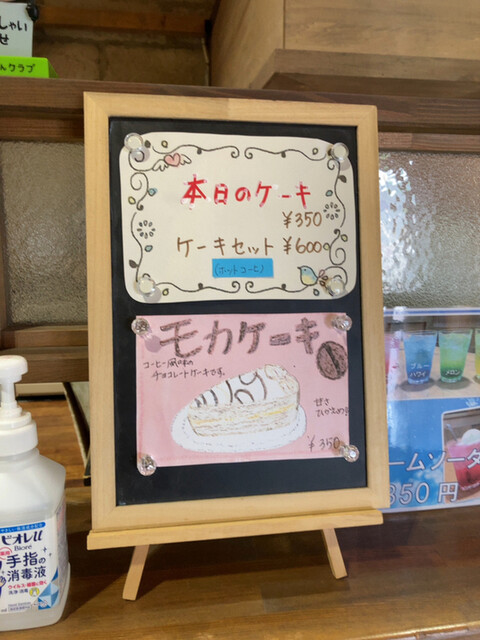 しゃい
せ
んクラブ
本日のケーキ
¥350
ケーキセット ¥600
(ホットコーヒ)
モカケーキ
コーヒー風味の
チョコレートケーキです。
甘さ
ひかえめ!
¥350
ブルー
ハワイ
メロン
ームソーダ
350円
ビオレu
Biore
手指の
消毒液